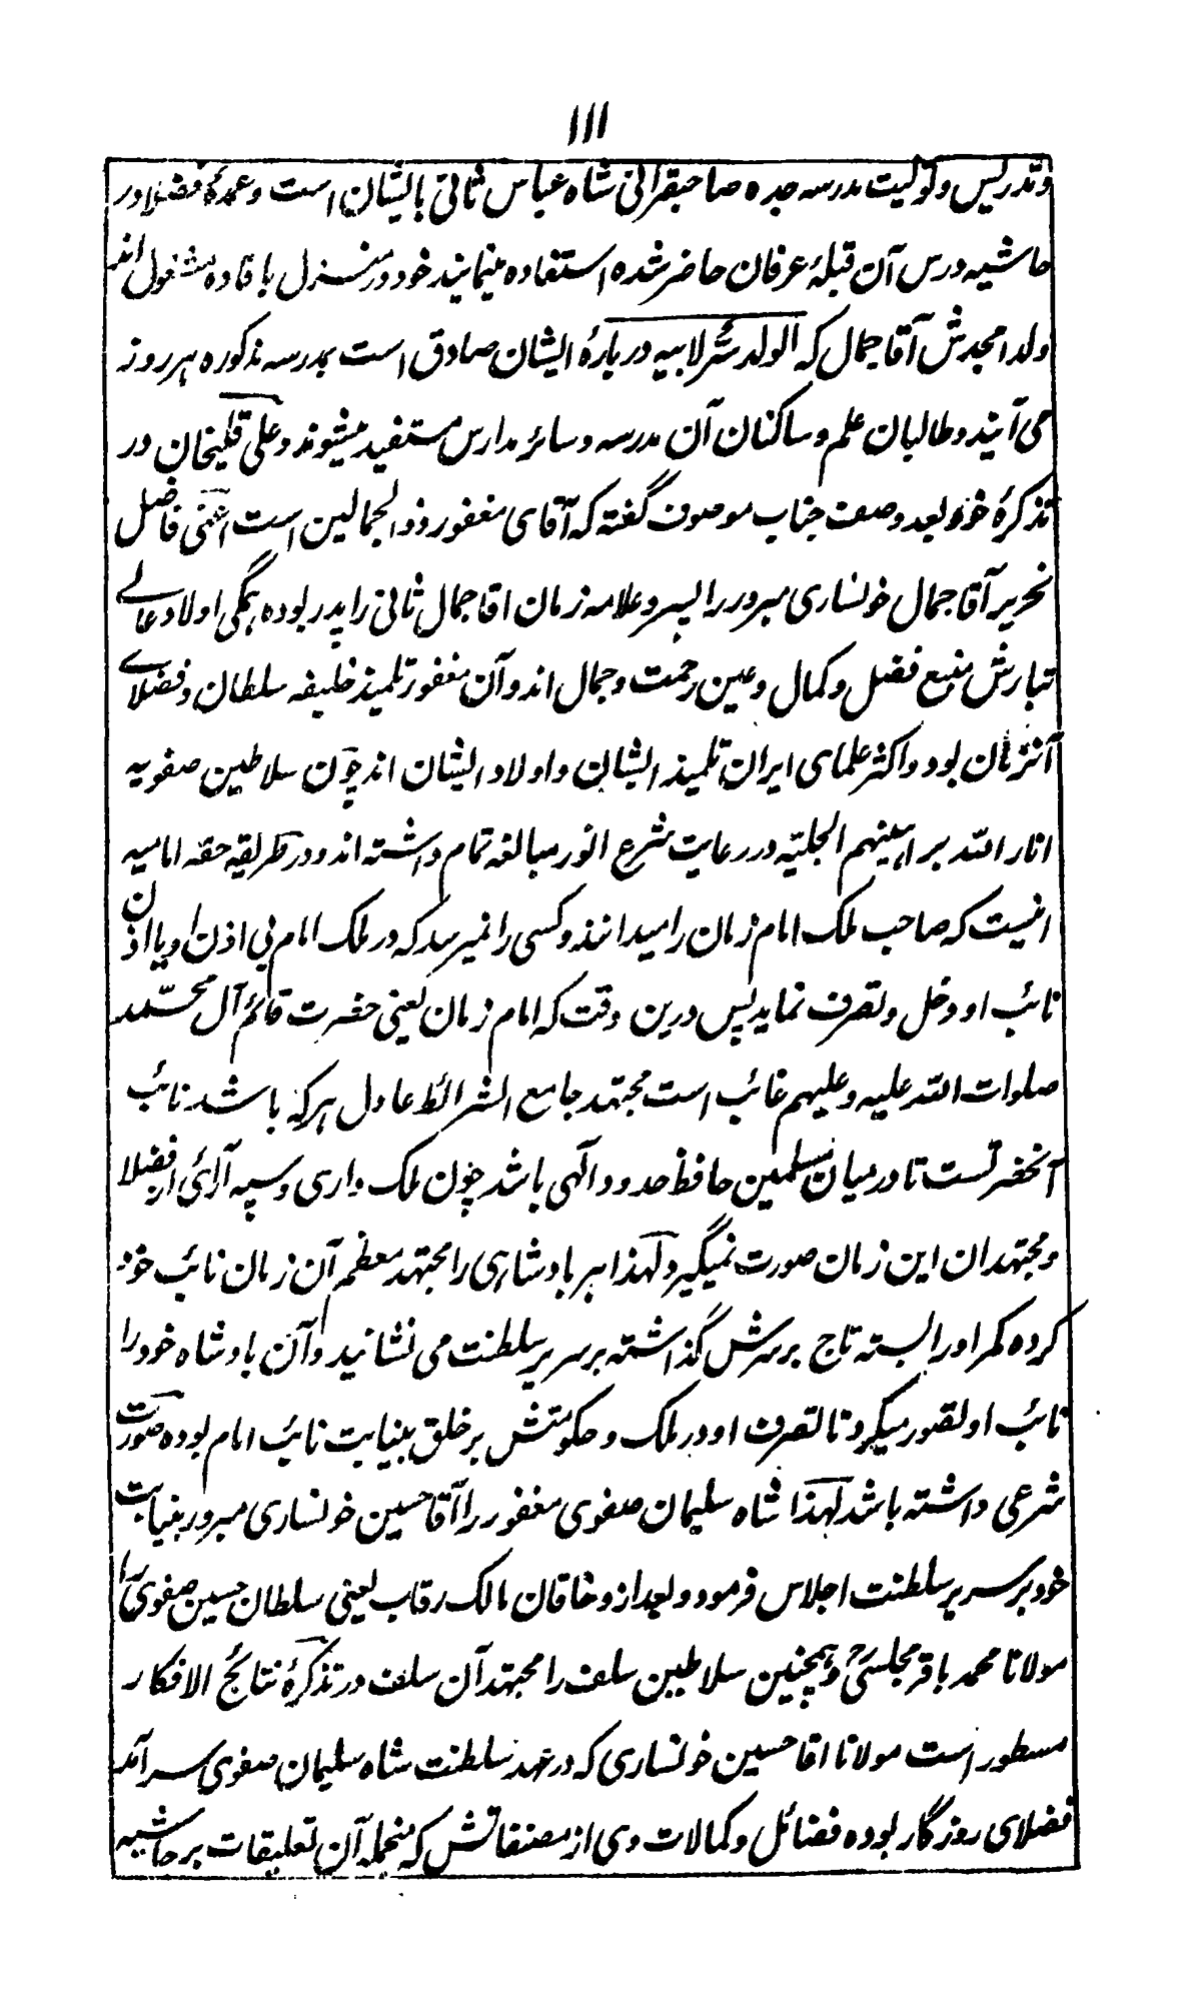 ۱۱۱
و تدریس و تولیت مدرسه جده صاحبقرانی شاه عباس ثانی بایشان است و عمدهٔ فضلا در
حاشیه درس آن قبلهٔ عرفان حاضر شده استفاده مینمایند خود در منزل بافاده مشغول اند
ولد امجدش آقا جمال که الولد سرّ لابیه در بارهٔ ایشان صادق است بمدرسه مذکوره هر روز
می آیند و طالبان علم و ساکنان آن مدرسه و سائر مدارس مستفید میشوند و علی قلیخان در
تذکرهٔ خود بعد وصف جناب موصوف گفته که آقای مغفور ذو الجمالین است اعنی فاضل
نحریر آقا جمال خونساری مبرور را پسر و علامه زمان اقا جمال ثانی را پدر بوده همگی اولاد عالے
تبارش منبع فضل و کمال و عین رحمت و جمال اند و آن مغفور تلمیذ خلیفه سلطان و فضلاے
آنزمان بود و اکثر علمای ایران تلمیذ ایشان و اولاد ایشان اند چون سلاطین صفویه
انار الله براهینهم الجلیّه در رعایت شرع انور مبالغه تمام داشته اند و در طریقه حقه امامیه
اینست که صاحب ملک امام زمان را میدانند و کسی را نمیرسد که در ملک امام بی اذن او یا اذن
نائب او دخل و تصرف نماید پس درین وقت که امام زمان یعنی حضرت قائم آل محمّد
صلوات الله علیه و علیهم غائب است مجتهد جامع الشرائط عادل هر که باشد نائب
آنحضرتست تا در میان مسلمین حافظ حدود الهی باشد چون ملک داری و سپه آرائی از فضلا
و مجتهدان این زمان صورت نمیگیرد لهذا هر بادشاهی را مجتهد معظم آن زمان نائب خود
کرده کمر او را بسته تاج بر سرش گذاشته بر سریر سلطنت می نشانید و آن بادشاه خود را
نائب او تصور میکرد تا تصرف او در ملک و حکومتش بر خلق بنیابت نائب امام بوده صورت
شرعی داشته باشد لهذا شاه سلیمان صفوی مغفور را آقا حسین خونساری مبرور بنیابت
خود بر سریر سلطنت اجلاس فرمود و بعد از و خاقان مالک رقاب یعنی سلطان حسین صفوی را
مولانا محمد باقر مجلسی و همچنین سلاطین سلف را مجتهد آن سلف در تذکرهٔ نتائج الافکار
مسطور است مولانا اقا حسین خونساری که در عهد سلطنت شاه سلیمان صفوی سرآمد
فضلای روزگار بوده فضائل و کمالات وی از مصنفاتش که منجمله آن تعلیقات بر حاشیه